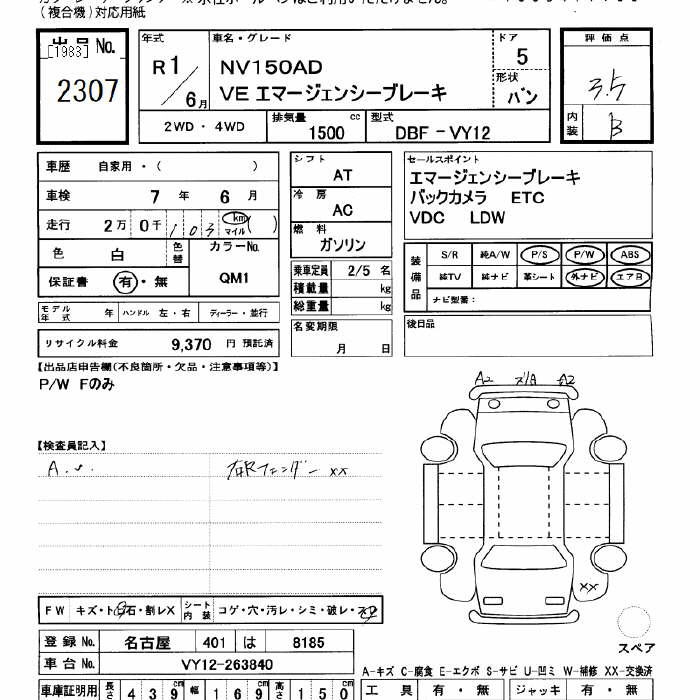 (複合機)対応用紙
出品 No.
[1983]
2307
年式
R1/6月
車名・グレード
NV150AD
VE エマージェンシーブレーキ
ドア
5
形状
バン
2WD・4WD
排気量
1500 cc
型式
DBF-VY12
評価点
3.5
内装
B
車歴 自家用・( )
車検 7 年 6 月
走行 2万 0千 103 km マイル ( )
色 白 色替 カラーNo.
保証書 有・無 QM1
モデル年式 年 ハンドル 左・右 ディーラー・並行
リサイクル料金 9,370 円 預託済
シフト
AT
冷房
AC
燃料
ガソリン
乗車定員 2/5 名
積載量 kg
総重量 kg
名変期限
月 日
セールスポイント
エマージェンシーブレーキ
バックカメラ ETC
VDC LDW
装備品
S/R 純A/W P/S P/W ABS
純TV 純ナビ 革シート 外ナビ エアB
ナビ型番:
後日品
【出品店申告欄(不良箇所・欠品・注意事項等)】
P/W Fのみ
A2 A2
【検査員記入】
A.S. 右Rフェンダー XX
XX
FW キズ・ト 石・割レX シート内装 コゲ・穴・汚レ・シミ・破レ・スレ
登録No. 名古屋 401 は 8185
車台No. VY12-263840
スペア
A-キズ C-腐食 E-エクボ S-サビ U-凹ミ W-補修 XX-交換済
車庫証明用 長さ 439cm 幅 169cm 高さ 150cm
工具 有・無 ジャッキ 有・無